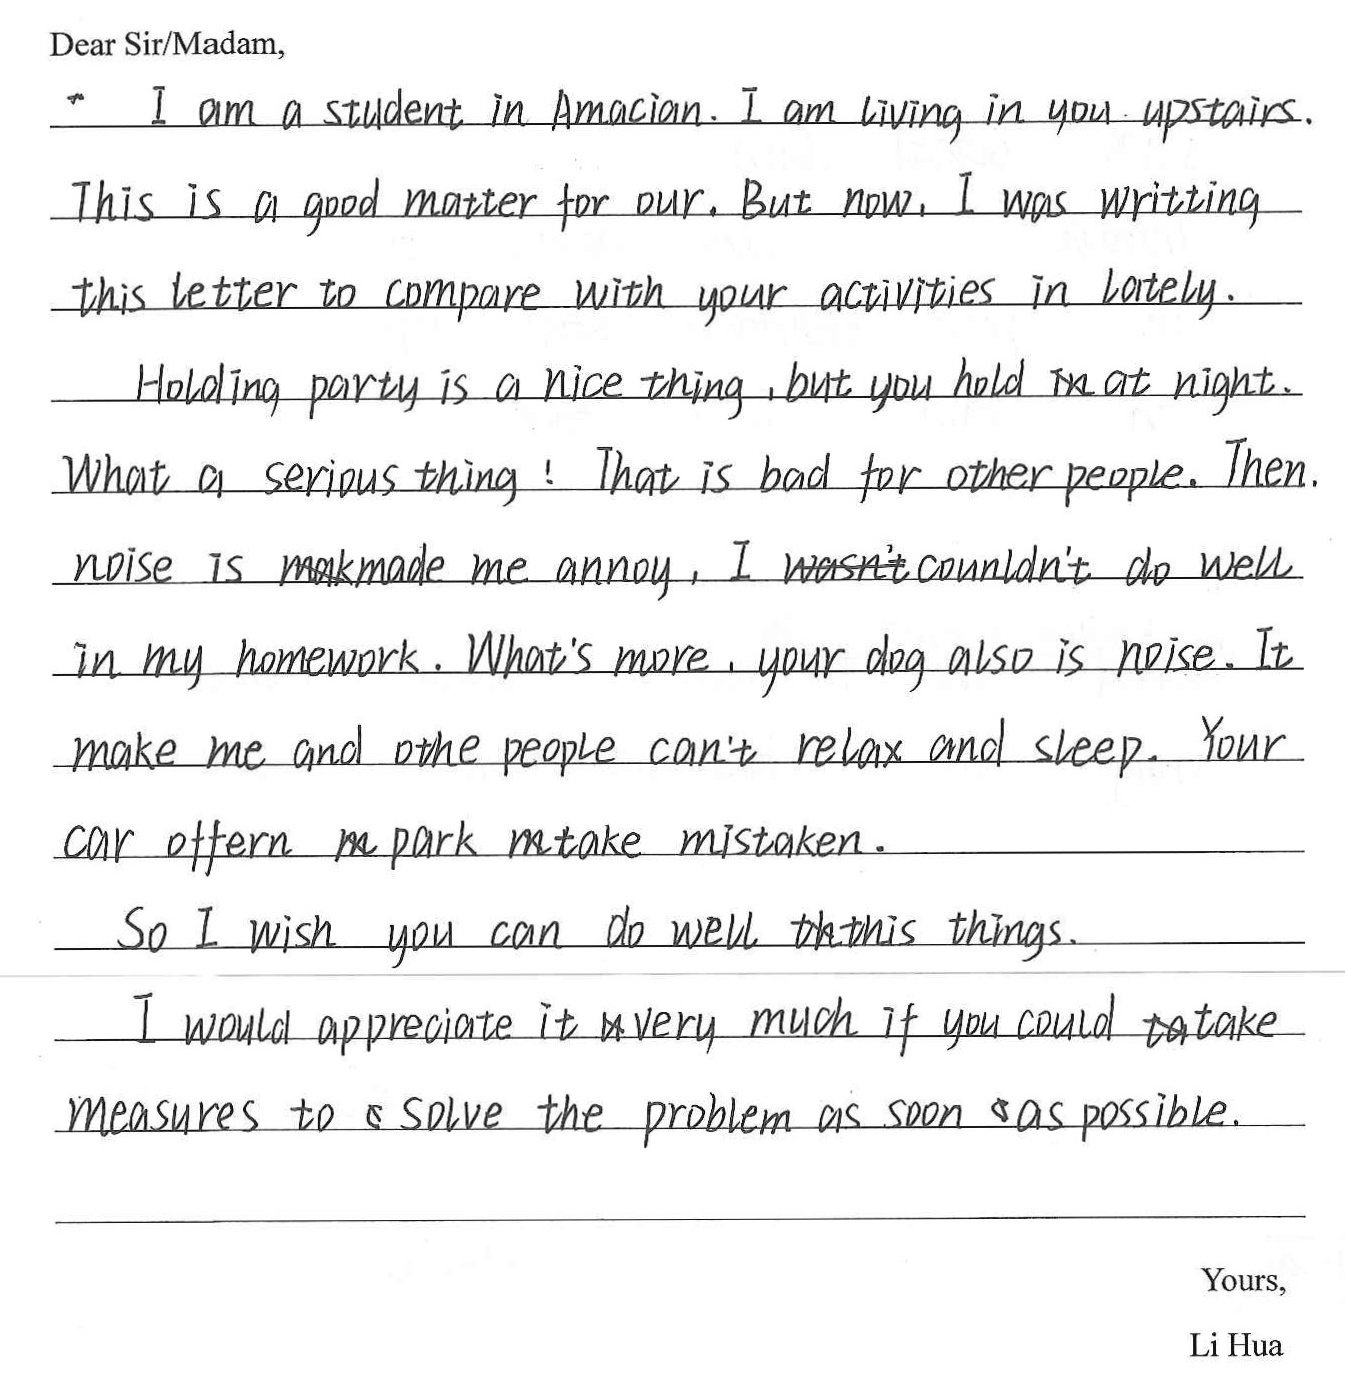 Dear Sir/Madam,
I am a student in Amacian. I am living in you upstairs.
This is a good matter for our. But now, I was writting
this letter to compare with your activities in lately.
Holding party is a nice thing, but you hold at night.
What a serious thing! That is bad for other people. Then,
noise is made me annoy, I counldn't do well
in my homework. What's more, your dog also is noise. It
make me and othe people can't relax and sleep. Your
car offern park take mistaken.
So I wish you can do well this things.
I would appreciate it very much if you could take
measures to solve the problem as soon as possible.
Yours,
Li Hua